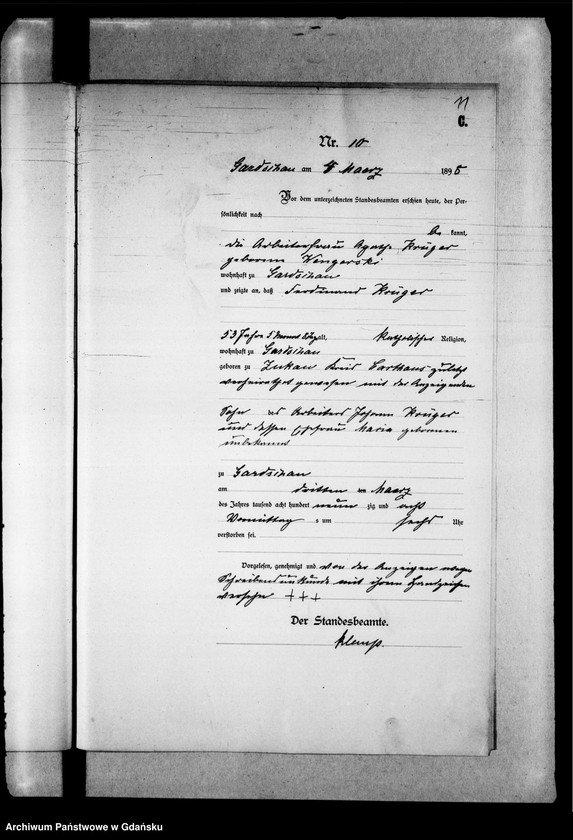 11
C.
Nr. 10
Gardschau am 4 Maerz 1895
Vor dem unterzeichneten Standesbeamten erschien heute, der Per-
sönlichkeit nach
be kannt,
die Arbeiterfrau Agathe Krüger
geborene Wengerski
wohnhaft zu Gardschau
und zeigte an, daß Ferdinand Krüger
53 Jahre 5 Monat alt, katholischer Religion,
wohnhaft zu Gardschau
geboren zu Zukau Kreis Carthaus zuletzt
verheirathet gewesen mit der Anzeigenden
Sohn des Arbeiters Johann Krüger
und dessen Ehefrau Maria geborenen
unbekannt
zu Gardschau
am dritten ten Maerz
des Jahres tausend acht hundert neun zig und
Vormittag s um sechs Uhr
verstorben sei.
Vorgelesen, genehmigt und von der Anzeigen wegen
Schreibensunkunde mit ihrem Handzeichen
versehn +++
Der Standesbeamte.